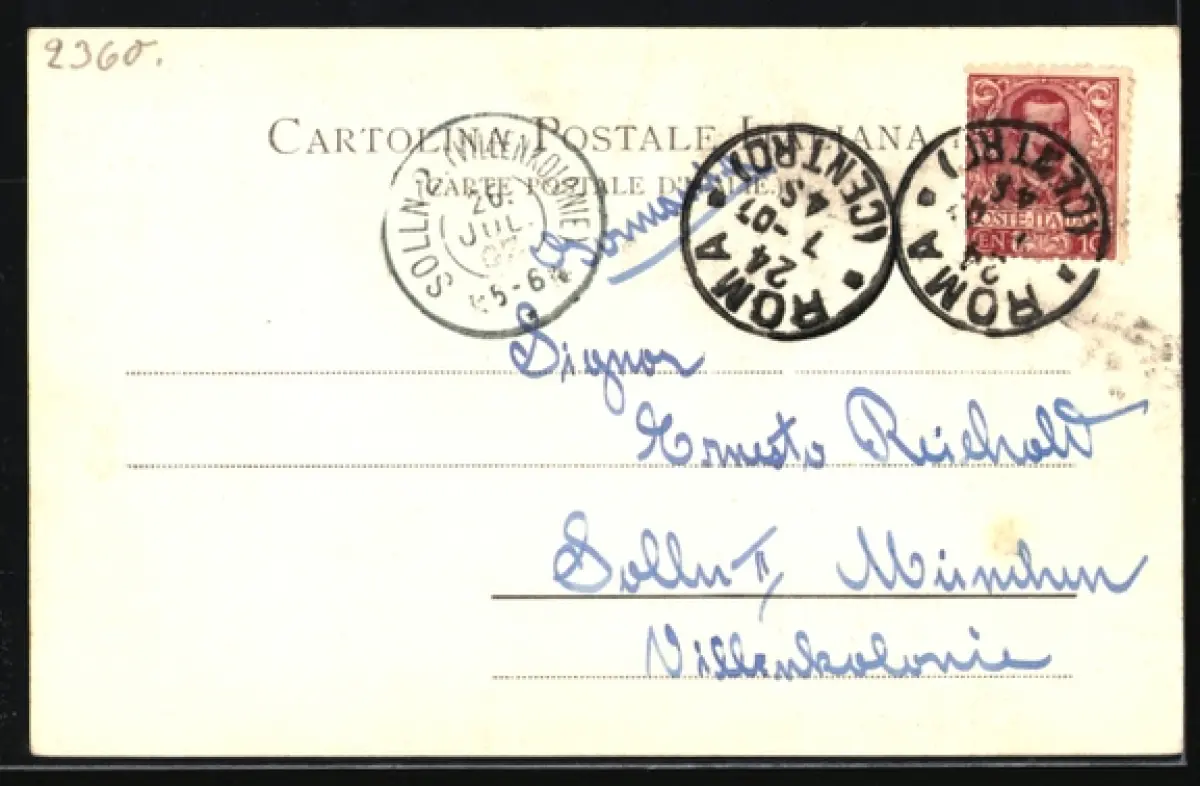 2360.
CARTOLINA POSTALE ITALIANA
(CARTE POSTALE D'ITALIE.)
SOLLN 2 (VILLENKOLONIE)
26.
JUL.
5-6
Germania
ROMA (CENTRO)
24
7 -07
4S
ROMA (CENTRO)
24
4S
POSTE ITALIANE
10
Signor
Ernesto Reichold
Solln II, München
Villenkolonie